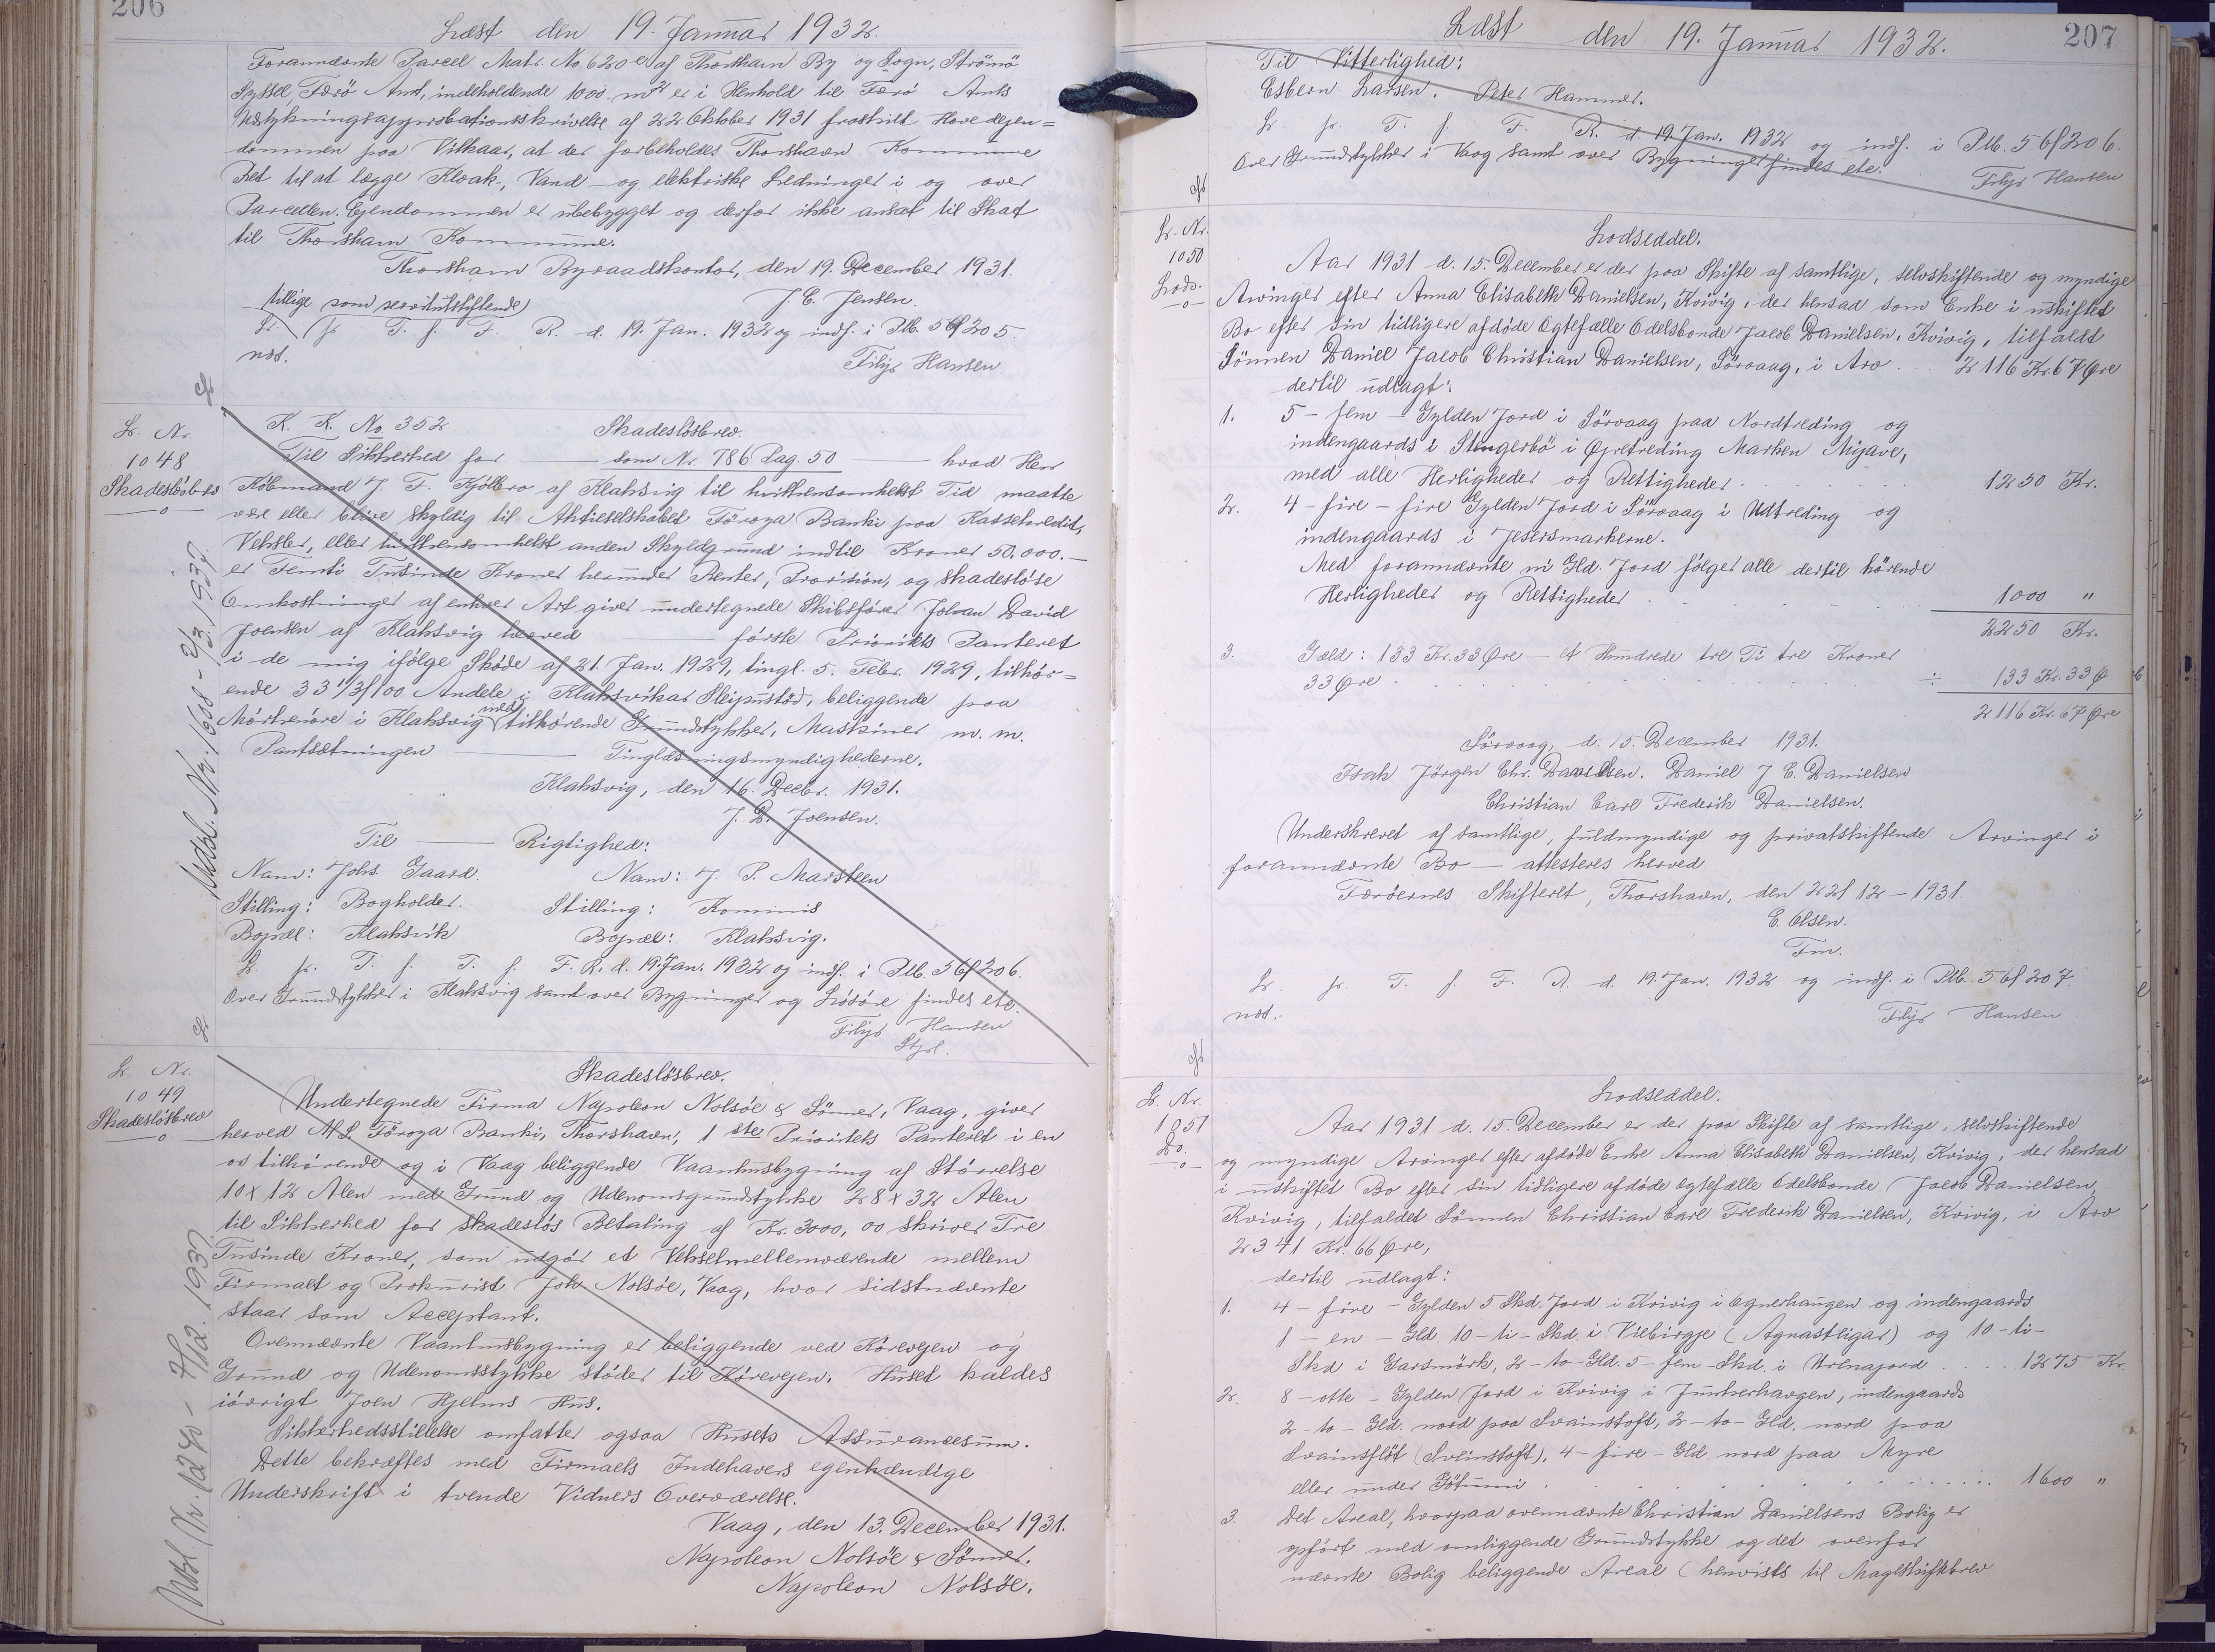 206
Læst den 19. Januar 1932.
Forannævnte Parcel Matr. No. 620e af Thorshavn By og Sogn, Strömö
Syssel, Færö Amt, indeholdende 1000 m2 er i Henhold til Færö Amts
Udstykningsapprobationsskrivelse af 22 Oktober 1931 fraskilt Hovedejen=
dommen paa Vilkaar, at der forbeholdes Thorshavn Kommune
Ret til at lægge Kloak-, Vand- og elektriske Ledninger i og over
Parcellen. Ejendommen er ubebygget og derfor ikke ansat til Skat
til Thorshavn Kommune.
Thorshavn Byraadskontor, den 19. December 1931.
tillige som servitutstiftende J. C. Jensen.
L. p. T. f. F. R. d. 19. Jan. 1932 og indf. i Plb. 56f 205.
nos. Filip Hansen
L. Nr.
1048
Skadeslösbrev
Udsl. Nr. 1688 - 2/3 1937
K. K. No 352 Skadeslösbrev.
Til Sikkerhed for som Nr. 786 Pag. 50 hvad Herr
Köbmand J. F. Kjölbro af Klaksvig til hvilkensomhelst Tid maatte
være eller blive skyldig til Aktieselskabet Föroya Banki paa Kassekredit,
Veksler, eller hvilkensomhelst anden Skyldgrund indtil Kroner 50.000.—
er Femti Tusinde Kroner herunder Renter, Provision, og skadeslöse
Omkostninger af enhver Art giver undertegnede Skibsförer Johan David
Joensen af Klaksvig herved förste Prioritets Panteret
i de mig ifölge Sköde af 21. Jan. 1929, tingl. 5. Febr. 1929, tilhör=
ende 33 1/3/100 Andele i Klaksvikar Sleipustöð, beliggende paa
Mörkenöre i Klaksvig med tilhörende Grundstykker, Maskiner m. m.
Pantsætningen Tinglæsningsmyndighederne.
Klaksvig, den 16. Decbr. 1931.
J. D. Joensen.
Til Rigtighed:
Navn: Johs Gaard. Navn: J. P. Marsteen
Stilling: Bogholder. Stilling: Kommis
Bopæl: Klaksvik Bopæl: Klaksvig.
L. p. T. f. T. f. F. R. d. 19. Jan. 1932 og indf. i Plb. 56f 206.
Over Grundstykker i Klaksvig samt over Bygninger og Lösöre findes etc.
Filip Hansen
L. Nr.
1049
Skadeslösbrev
Udsl. Nr. 1240 - 7/12. 1937
Skadeslösbrev.
Undertegnede Firma Napoleon Nolsöe & Sönner, Vaag, giver
herved A/S. Föroya Banki, Thorshavn, 1ste Prioritets Panteret i en
os tilhörende og i Vaag beliggende Vaanhusbygning af Störrelse
10 x 12 Alen med Grund og Udenomsgrundstykke 28 x 32 Alen
til Sikkerhed for skadeslös Betaling af Kr. 3000,00 skriver Tre
Tusinde Kroner, som udgör et Vekselmellemværende mellem
Firmaet og Prokurist Johs Nolsöe, Vaag, hvor sidstnævnte
staar som Acceptant.
Ovennævnte Vaanhusbygning er beliggende ved Körevejen og
Grund og Udenomsstykke stöder til Körevejen. Huset kaldes
iövrigt Joen Hjelms Hus.
Sikkerhedsstillelse omfatter ogsaa Husets Assurancesum.
Dette bekræftes med Firmaets Indehavers egenhændige
Underskrift i tvende Vidners Overværelse.
Vaag, den 13. December 1931.
Napoleon Nolsöe & Sönner.
Napoleon Nolsöe.
207
Læst den 19. Januar 1932.
Til Vitterlighed:
Esbern Larsen. Peter Hammer.
L. p. T. f. F. R. d. 19 Jan. 1932 og indf. i Plb. 56f 206.
Over Grundstykker i Vaag samt over Bygninger findes etc.
Filip Hansen
L. Nr.
1050
Lods.
Lodseddel.
Aar 1931 d. 15. December er der paa Skifte af samtlige, selvskiftende og myndige
Arvinger efter Anna Elisabeth Danielsen, Kvivig, der hensad som Enke i uskiftet
Bo efter sin tidligere afdöde Ægtefælle Odelsbonde Jacob Danielsen, Kvivig, tilfaldt
Sönnen Daniel Jacob Christian Danielsen, Sörvaag, i Arv 2116 Kr. 67 Øre
dertil udlagt:
1. 5 - fem - Gylden Jord i Sörvaag paa Nordtreding og
indengaards i Stengerbö i Øpretreding Marken Mijave,
med alle Herligheder og Rettigheder 1250 Kr.
2. 4 - fire - fire Gylden Jord i Sörvaag i Udtreding og
indengaards i Jesersmarkerne.
Med forannævnte ni Gld. Jord fölger alle dertil hörende
Herligheder og Rettigheder 1000 "
2250 Kr.
3. Gæld: 133 Kr. 33 Øre - et Hundrede tre Ti tre Kroner
33 Øre ÷ 133 Kr. 33 Ø
2116 Kr. 67 Øre
Sörvaag, d. 15. December 1931.
Isak Jörgen Chr. Danielsen. Daniel J C. Danielsen
Christian Carl Frederik Danielsen.
Underskrevet af samtlige, fuldmyndige og privatskiftende Arvinger i
forannævnte Bo — attesteres herved.
Færöernes Skifteret, Thorshavn, den 22/12 - 1931.
E. Olsen.
Fm.
L. p. T. f. F. R. d. 19. Jan. 1932 og indf. i Plb. 56f 207.
nos. Filip Hansen
L. Nr.
1051
Do.
Lodseddel.
Aar 1931 d. 15. December er der paa Skifte af samtlige, selvskiftende
og myndige Arvinger efter afdöde Enke Anna Elisabeth Danielsen, Kvivig, der hensad
i uskiftet Bo efter sin tidligere afdöde Ægtefælle Odelsbonde Jacob Danielsen,
Kvivig, tilfaldet Sönnen Christian Carl Frederik Danielsen, Kvivig, i Arv
2341 Kr. 66 Øre,
dertil udlagt:
1. 4 - fire - Gylden 5 Skd. Jord i Kvivig i Ognerhaugen og indengaards
1 - en - Gld. 10 - ti - Skd. i Viebirgje (Agnastligar) og 10 - ti -
Skd i Garsmörk, 2 - to - Gld. 5 - fem - Skd. i Urenajord 1275 Kr.
2. 8 - otte - Gylden Jord i Kvivig i Junkerhavgen, indengaards
2 - to - Gld. nord paa Svainstoft, 2 - to - Gld. nord paa
Svainsflöt (Sveinstoft), 4 - fire - Gld. nord paa Myre
eller under Götunni 1600 "
3. Det Areal, hvorpaa ovennævnte Christian Danielsens Bolig er
opfört med omliggende Grundstykke og det ovenfor
nævnte Bolig beliggende Areal (henvises til Mageskiftebrev